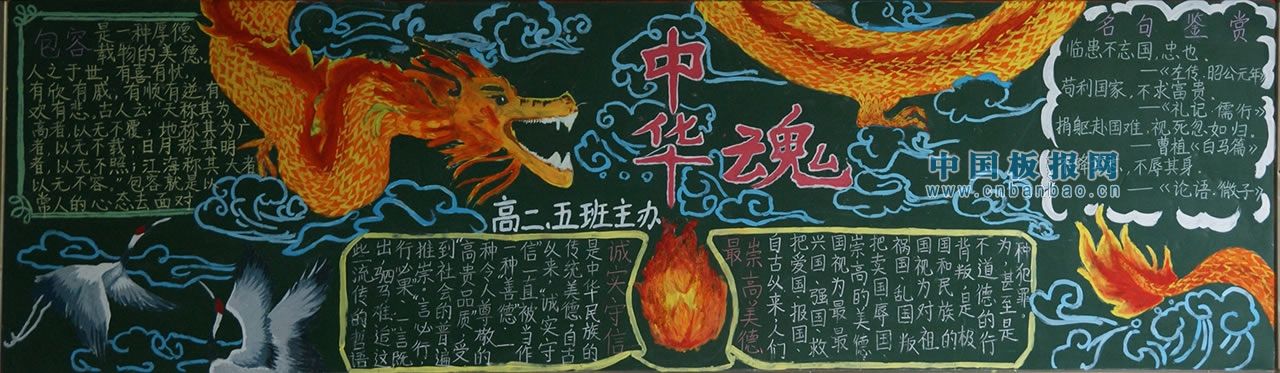 包容
是一种厚德、
载物的美德，
人之于世，有喜有忧，
有欣有戚，有顺有逆，有
欢有悲，古人云：“天称其
高者，以无不覆；地称其广
者，以无不载；日月称其明
者，以无不照；江海称其大者
以无不容。”包容就是以
常人的心态去面对
中华魂
高二.五班主办
诚实守信
是中华民族的
传统美德，自古
以来，“诚实守
信”一直被当作
一种善德、一
种令人尊敬的
“高贵品质”，受
到社会的普遍
推崇，“言必行，
行必果”、“一言既
出，驷马难追”这
些流传的哲语
最崇高美德
自古以来人们
把爱国、报国、
兴国、强国、救
国视为最最最
崇高的美德
把卖国、辱国、
祸国、乱国、叛
国视为对祖
国和民族的
背叛，是极
不道德的行
为，甚至是
种犯罪，
名句鉴赏
临患不忘国，忠也.
——《左传.昭公元年》
苟利国家，不求富贵.
——《礼记·儒行》
捐躯赴国难，视死忽如归.
——曹植《白马篇》
不辱其身.
——《论语·微子》
中国板报网
www.cnbanbao.cn